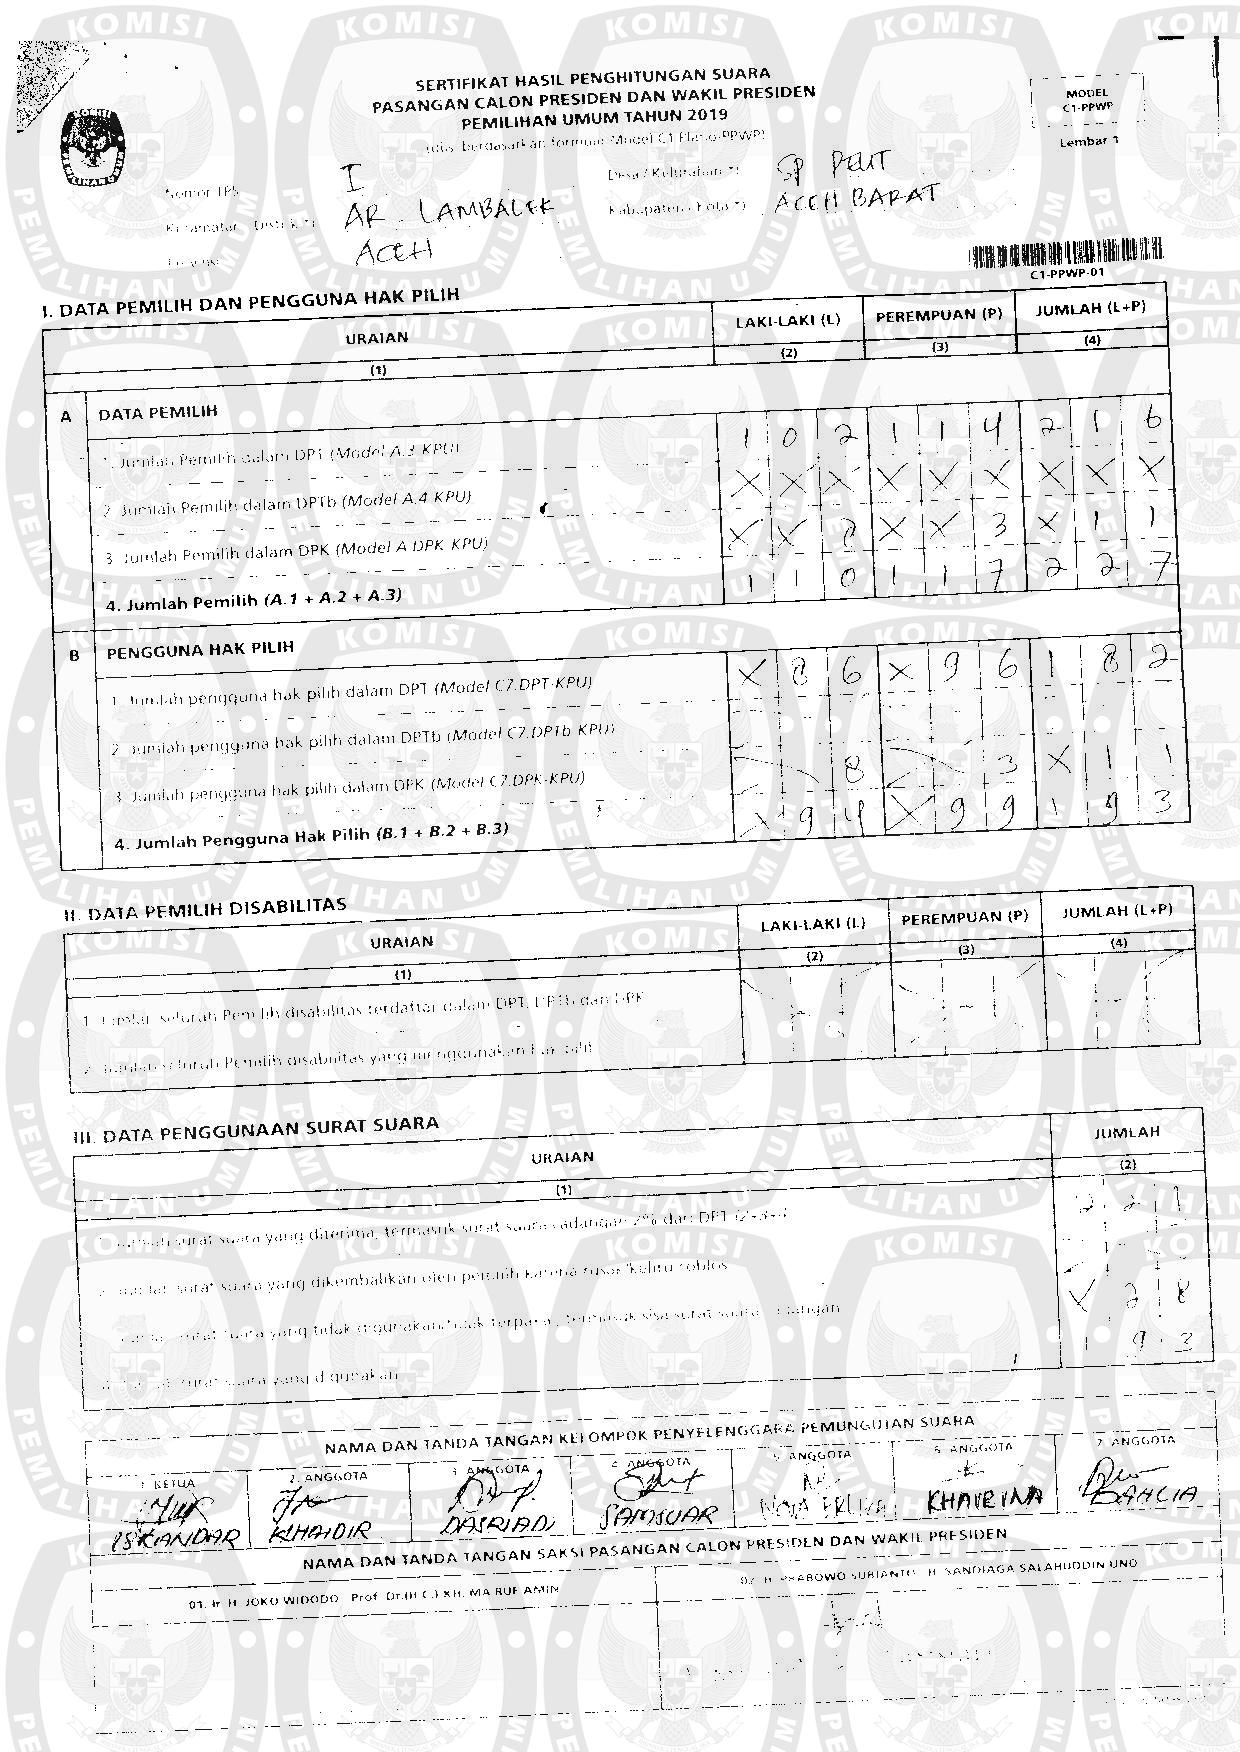 SERTIFIKAT HASIL PENGHITUNGAN SUARA
PASANGAN CALON PRESIDEN DAN WAKIL PRESIDEN
PEMILIHAN UMUM TAHUN 2019
MODEL
C1-PPWP
Lembar 1
Nomor TPS I
Desa / Kelurahan *) SP PEUT
AR. LAMBALEK
Kabupaten / Kota *) ACEH BARAT
ACEH
C1-PPWP-01
I. DATA PEMILIH DAN PENGGUNA HAK PILIH
URAIAN LAKI-LAKI (L) PEREMPUAN (P) JUMLAH (L+P)
(1) (2) (3) (4)
A DATA PEMILIH
1. Jumlah Pemilih dalam DPT (Model A.3-KPU) 1 0 2 1 1 4 2 1 6
2. Jumlah Pemilih dalam DPTb (Model A.4-KPU) X X X X X X X X X
3. Jumlah Pemilih dalam DPK (Model A.DPK-KPU) X X 8 X X 3 X 1 1
4. Jumlah Pemilih (A.1 + A.2 + A.3) 1 1 0 1 1 7 2 2 7
B PENGGUNA HAK PILIH
1. Jumlah pengguna hak pilih dalam DPT (Model C7.DPT-KPU) X 8 6 X 9 6 1 8 2
2. Jumlah pengguna hak pilih dalam DPTb (Model C7.DPTb-KPU)
3. Jumlah pengguna hak pilih dalam DPK (Model C7.DPK-KPU) 8 3 X 1 1
4. Jumlah Pengguna Hak Pilih (B.1 + B.2 + B.3) X 9 4 X 9 9 1 9 3
II. DATA PEMILIH DISABILITAS
URAIAN LAKI-LAKI (L) PEREMPUAN (P) JUMLAH (L+P)
(1) (2) (3) (4)
1. Jumlah seluruh Pemilih disabilitas terdaftar dalam DPT, DPTb dan DPK
2. Jumlah seluruh Pemilih disabilitas yang menggunakan hak pilih
III. DATA PENGGUNAAN SURAT SUARA
URAIAN JUMLAH
(1) (2)
surat suara yang diterima, termasuk surat suara cadangan 2% dari DPT (2+3+4) 2 2 1
surat suara yang dikembalikan oleh pemilih karena rusak/keliru coblos
surat suara yang tidak digunakan/tidak terpakai, termasuk sisa surat suara cadangan X 2 8
surat suara yang digunakan 1 9 3
NAMA DAN TANDA TANGAN KELOMPOK PENYELENGGARA PEMUNGUTAN SUARA
1. KETUA 2. ANGGOTA 3. ANGGOTA 4. ANGGOTA 5. ANGGOTA 6. ANGGOTA 7. ANGGOTA
ISKANDAR KHAIDIR DASRIADI SAMSUAR KHAIRINA DAHLIA
NAMA DAN TANDA TANGAN SAKSI PASANGAN CALON PRESIDEN DAN WAKIL PRESIDEN
01. Ir. H. JOKO WIDODO - Prof. Dr.(H.C.) KH. MA'RUF AMIN
02. H. PRABOWO SUBIANTO - H. SANDIAGA SALAHUDDIN UNO